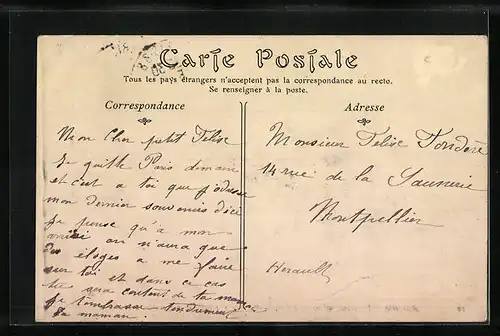 Carte Postale
Tous les pays étrangers n'acceptent pas la correspondance au recto.
Se renseigner à la poste.
Correspondance
Adresse
Mon Cher petit Felise
Je quitte Paris demain
et c'est a toi que j'adresse
mon dernier souvenirs d'ici
Je pense qu'a mon
on n'aura que
des éloges a me faire
sur toi et dans ce cas
tu sera content de ta maman
Je t'embrasse tendrement
Ta maman.
Monsieur Felise
14 rue de la Saunerie
Montpellier
Herault